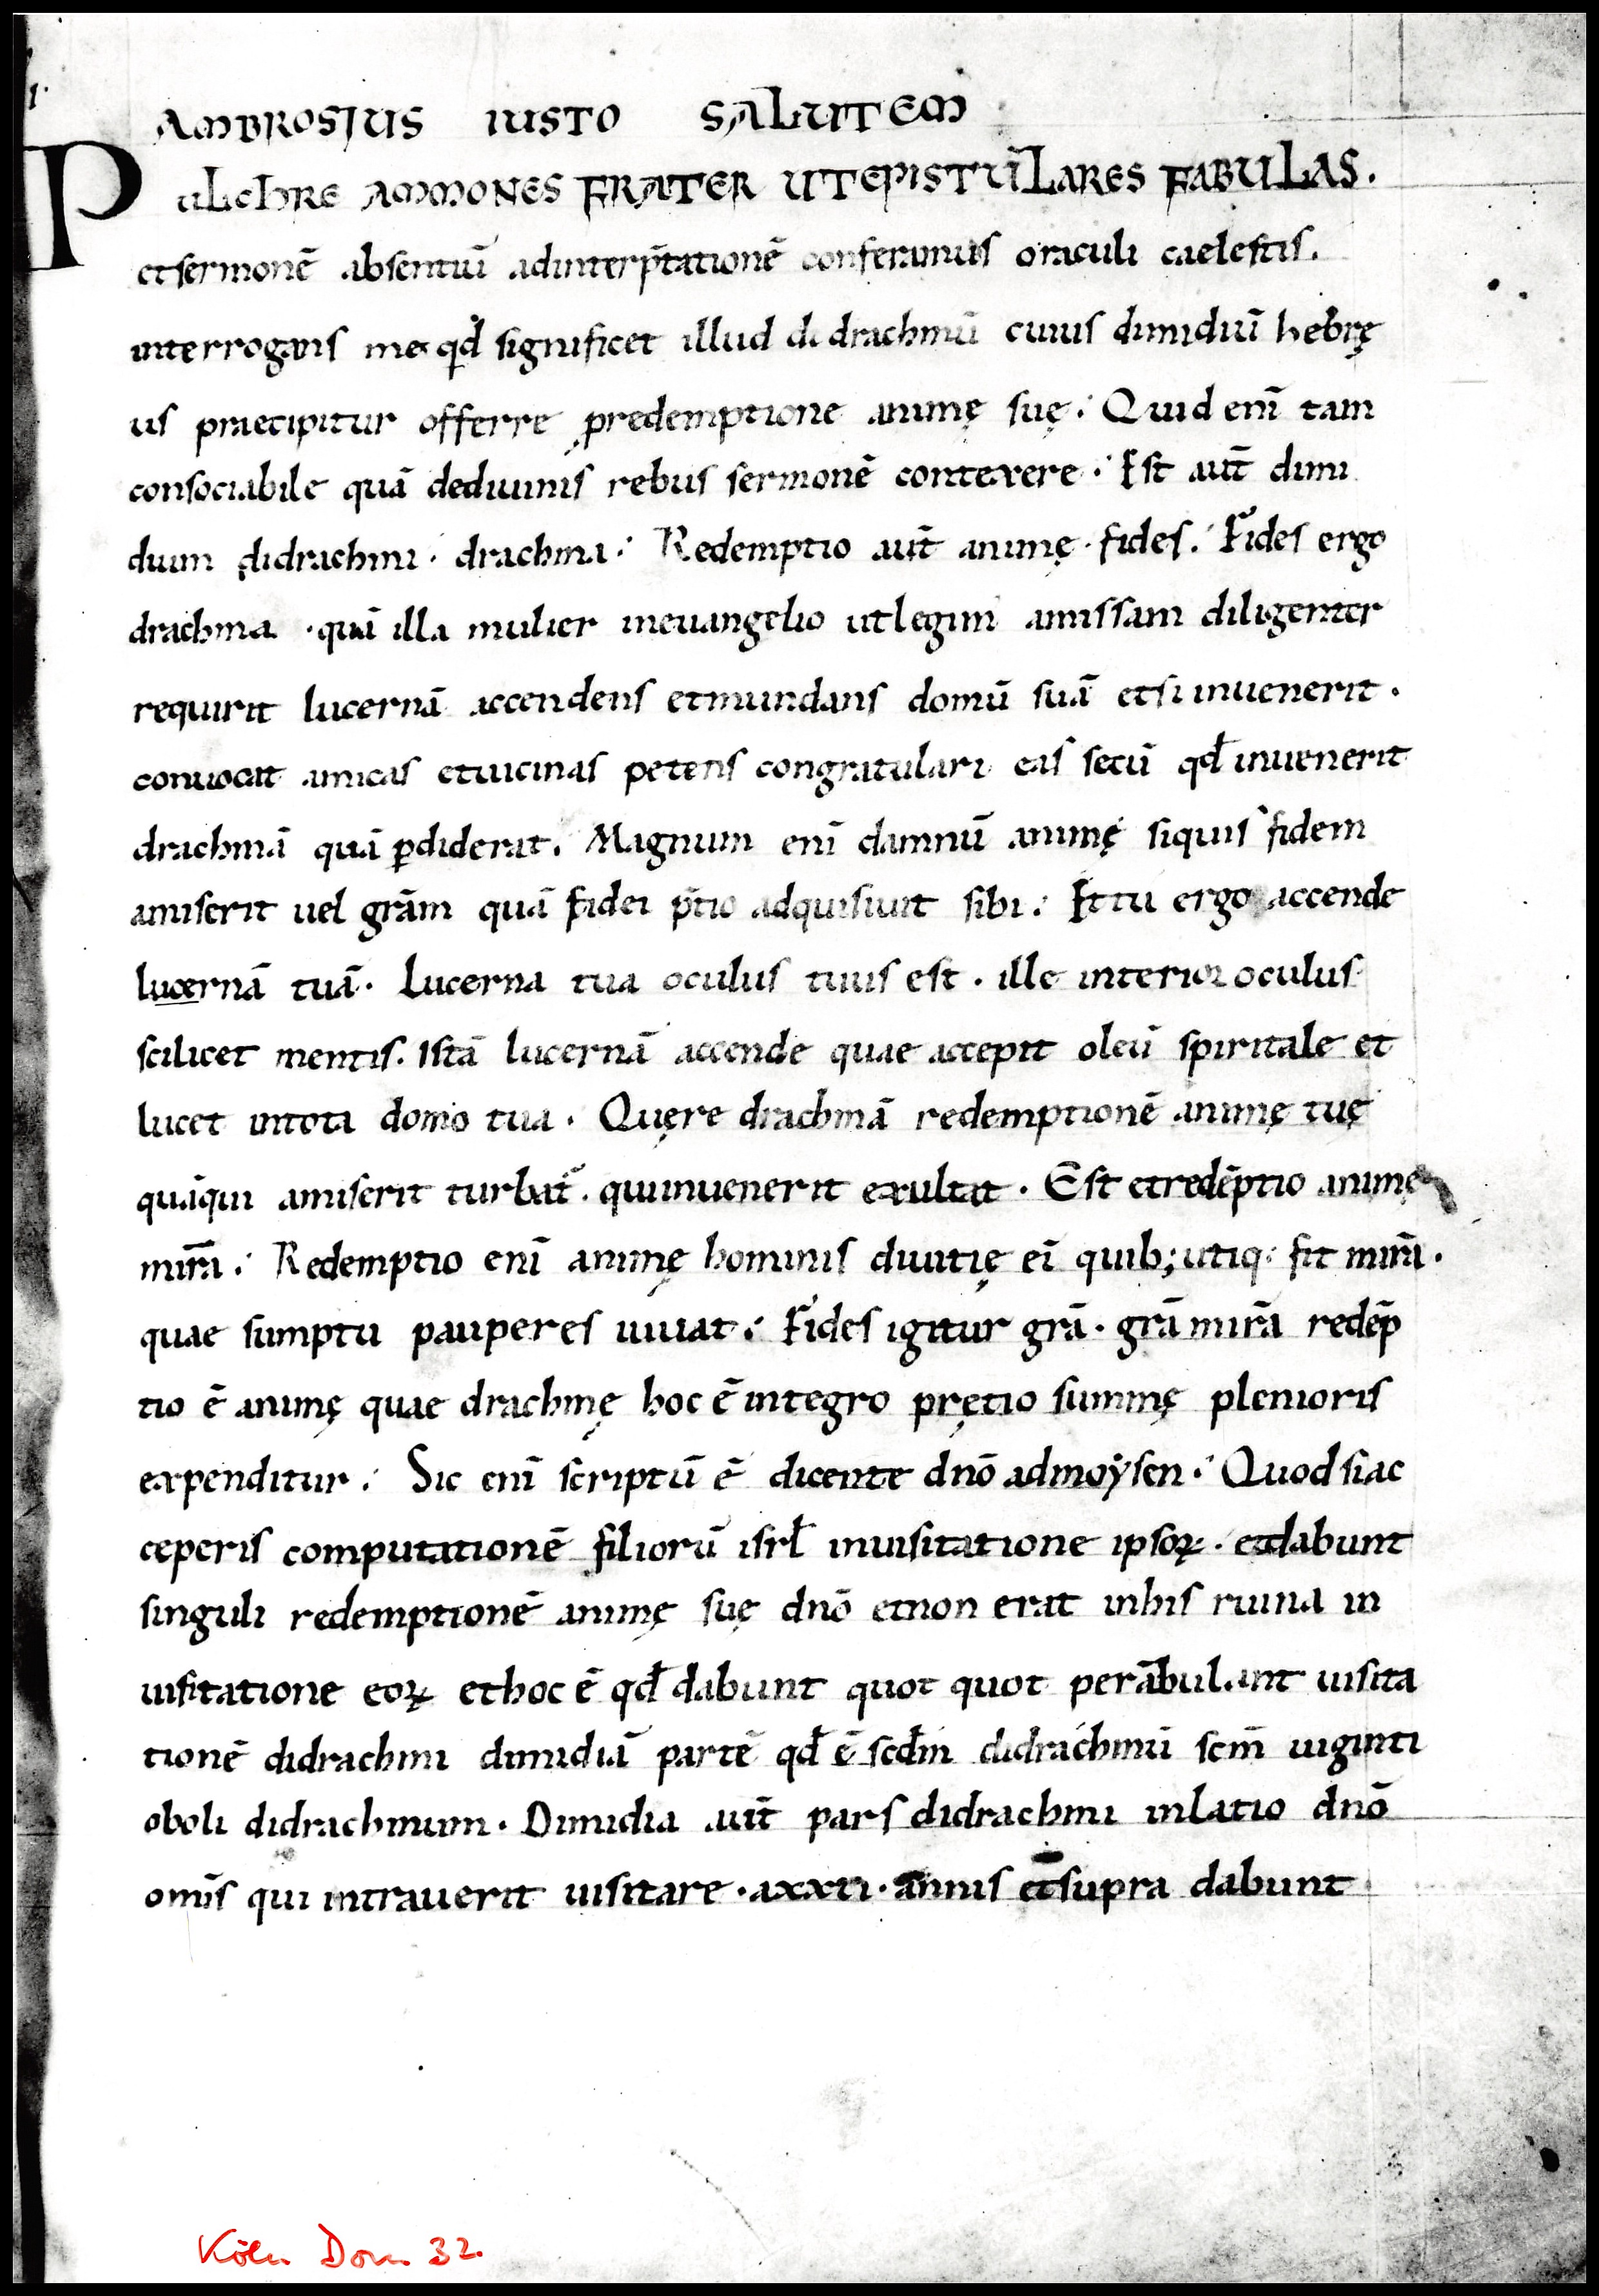 I.
AMBROSIUS IUSTO SALUTEM
PULCHRE AMMONES FRATER UT EPISTULARES FABULAS.
et sermonē absentiū ad interp̄tationē conferamus oraculi caelestis.
interrogans me qd̄ significet illud didrachmū cuius dimidiū hebrę
us praecipitur offerre p redemptione animę suę. Quid enī tam
consociabile quā de diuinis rebus sermonē contexere. Est aut̄ dimi
dium didrachmi. drachma. Redemptio aut̄ animę. fides. Fides ergo
drachma. quā illa mulier in euangelio ut legim̄ amissam diligenter
requirit lucernā accendens et mundans domū suā et si inuenerit.
conuocat amicas et uicinas petens congratulari eas secū qd̄ inuenerit
drachmā quā ꝑdiderat. Magnum enī damnū animę siquis fidem
amiserit uel grām quā fidei p̄tio adquisiuit sibi. Et tu ergo accende
lucernā tuā. Lucerna tua oculus tuus est. ille interior oculus
scilicet mentis. Istā lucernā accende quae accepit oleū spiritale et
lucet in tota domo tua. Quęre drachmā redemptionē animę tuę
quā qui amiserit turbat̄. qui inuenerit exultat. Est et redēptio animę
mīrā. Redemptio enī animę hominis diuitię eī quib; utiq: fit mīrā.
quae sumptu pauperes iuuat. Fides igitur grā. grā mīrā redēp
tio ē animę quae drachmę hoc ē integro prętio summę plenioris
expenditur. Sic enī scriptū ē dicente dnō ad moẏsen. Quod si ac
ceperis computationē filiorū isrl̄ in uisitatione ipsoꝝ. et dabunt
singuli redemptionē animę suę dnō et non erat in his ruina in
uisitatione eoꝝ et hoc ē qd̄ dabunt quot quot perābulant uisita
tionē didrachmi dimidiā partē qd̄ ē scd̄m didrachmū scm̄ uiginti
oboli didrachmum. Dimidia aut̄ pars didrachmi inlatio dnō
omīs qui intrauerit uisitare. a xxti. annis et supra dabunt
Köln Dom 32.